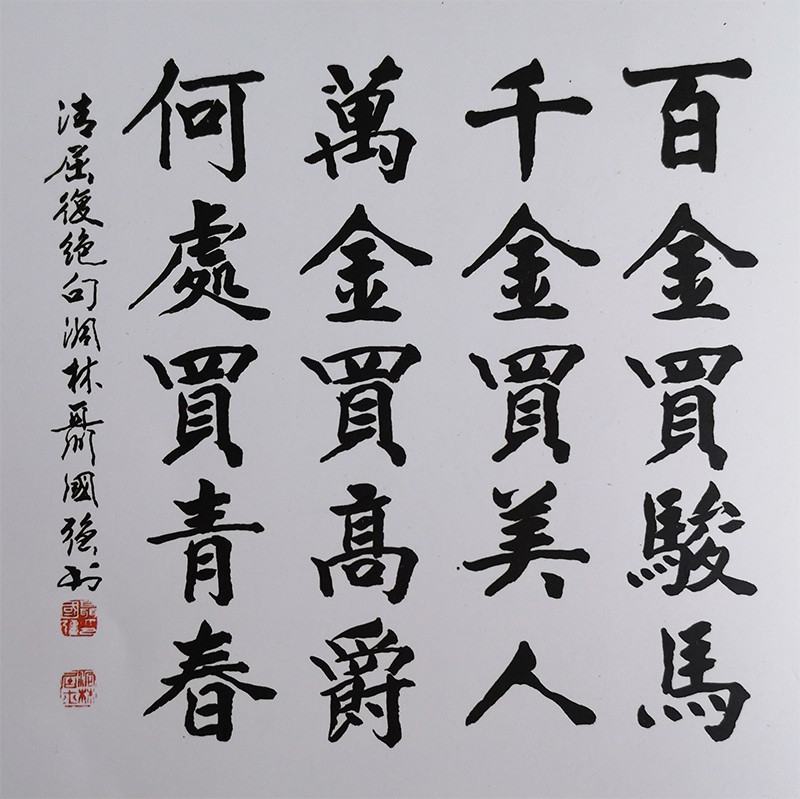 百金買駿馬
千金買美人
萬金買高爵
何處買青春
清屈復絕句澗林聶國強书